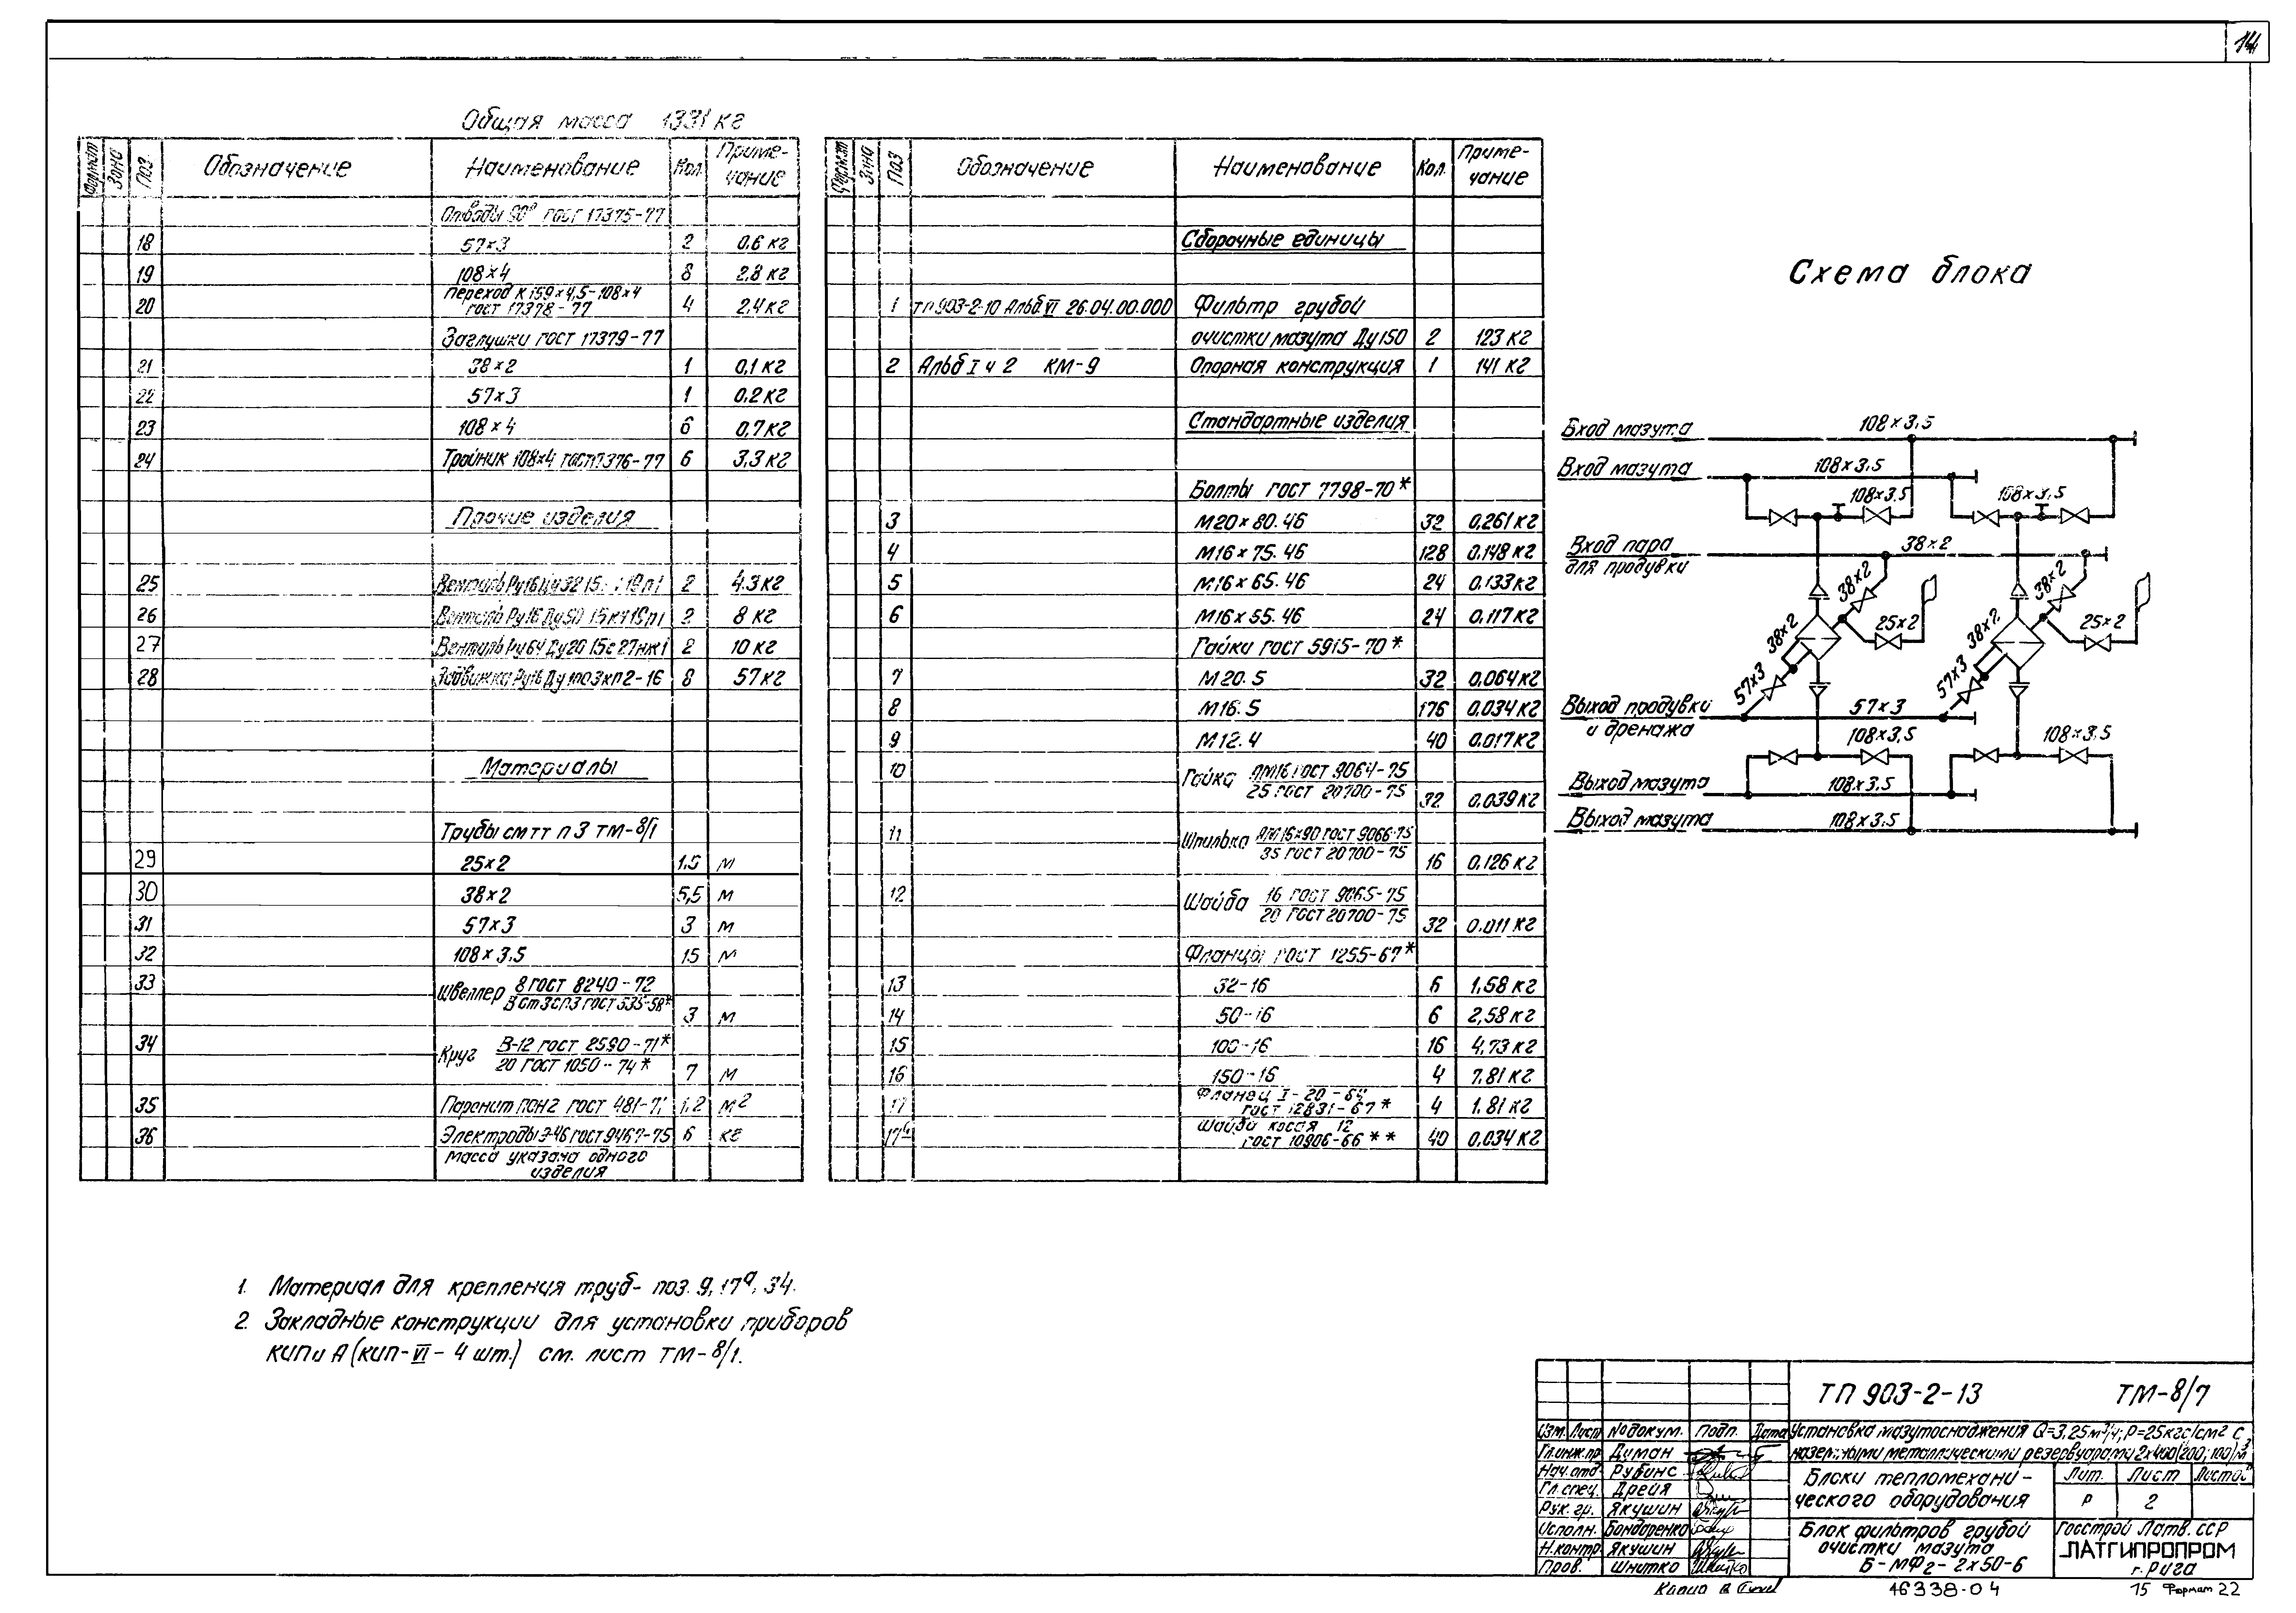 14
Общая масса 1331 кг
Формат Зона Поз. Обозначение Наименование Кол. Приме-чание
Отводы 90° ГОСТ 17375-77
18 57×3 2 0,6 кг
19 108×4 8 2,8 кг
20 Переход К 159×4,5-108×4 ГОСТ 17378-77 4 2,4 кг
Заглушки ГОСТ 17379-77
21 38×2 1 0,1 кг
22 57×3 1 0,2 кг
23 108×4 6 0,7 кг
24 Тройник 108×4 ГОСТ 17376-77 6 3,3 кг
Прочие изделия
25 Вентиль Ру16 Ду32 2 4,3 кг
26 Вентиль Ру16 Ду50 15кч19п1 2 8 кг
27 Вентиль Ру64 Ду20 15с27нж1 2 10 кг
28 Задвижка Ру16 Ду100 ЗКП2-16 8 57 кг
Материалы
Трубы см ТТ п 3 ТМ-8/1
29 25×2 1,5 м
30 38×2 5,5 м
31 57×3 3 м
32 108×3,5 15 м
33 Швеллер 8 ГОСТ 8240-72
В Ст3сп3 ГОСТ 535-58* 3 м
34 Круг В-12 ГОСТ 2590-71*
20 ГОСТ 1050-74* 7 м
35 Паронит ПОН2 ГОСТ 481-71 1,2 м2
36 Электроды Э-46 ГОСТ 9467-75 6 кг
Масса указана одного
изделия
Формат Зона Поз Обозначение Наименование Кол. Приме-чание
Сборочные единицы
1 ТП 903-2-10 Альб VI 26.04.00.000 Фильтр грубой
очистки мазута Ду150 2 123 кг
2 Альб I ч 2 КМ-9 Опорная конструкция 1 141 кг
Стандартные изделия
Болты ГОСТ 7798-70*
3 М20×80.46 32 0,261 кг
4 М16×75.46 128 0.148 кг
5 М16×65.46 24 0.133 кг
6 М16×55.46 24 0,117 кг
Гайки ГОСТ 5915-70*
7 М20.5 32 0,064 кг
8 М16.5 176 0.034 кг
9 М12.4 40 0.017 кг
10 Гайка АМ16 ГОСТ 9064-75
25 ГОСТ 20700-75 32 0.039 кг
11 Шпилька АМ16×90 ГОСТ 9066-75
35 ГОСТ 20700-75 16 0.126 кг
12 Шайба 16 ГОСТ 9065-75
20 ГОСТ 20700-75 32 0.011 кг
Фланцы ГОСТ 1255-67*
13 32-16 6 1,58 кг
14 50-16 6 2,58 кг
15 100-16 16 4,73 кг
16 150-16 4 7.81 кг
17 Фланец I-20-64
ГОСТ 12831-67* 4 1.81 кг
17а Шайба косая 12
ГОСТ 10906-66** 40 0,034 кг
Схема блока
Вход мазута 108×3,5
Вход мазута 108×3,5
108×3,5 108×3,5
Вход пара 38×2
для продувки
38×2 38×2
25×2 25×2
38×2 38×2
57×3 57×3
Выход продувки 57×3
и дренажа
108×3,5 108×3,5
Выход мазута 108×3,5
Выход мазута 108×3,5
1. Материал для крепления труб- поз. 9, 17а, 34.
2. Закладные конструкции для установки приборов
КИП и А (КИП-VI-4 шт.) см. лист ТМ-8/1.
ТП 903-2-13 ТМ-8/7
Изм. Лист № докум. Подп. Дата
Гл.инж.пр Думан
Нач.отд Рубинс
Гл.спец. Дрейя
Рук. гр. Якушин
Исполн. Бондаренко
Н.контр Якушин
Пров. Шнитко
Установка мазутоснабжения Q=3,25м³/ч; Р=25кгс/см2 с
наземными металлическими резервуарами 2×400(200; 100) м3
Блоки тепломехани-
ческого оборудования
Лит. Лист Листов
Р 2
Блок фильтров грубой
очистки мазута
Б-МФ2-2×50-6
Госстрой Латв. ССР
ЛАТГИПРОПРОМ
г. Рига
46338-04 15 Формат 22